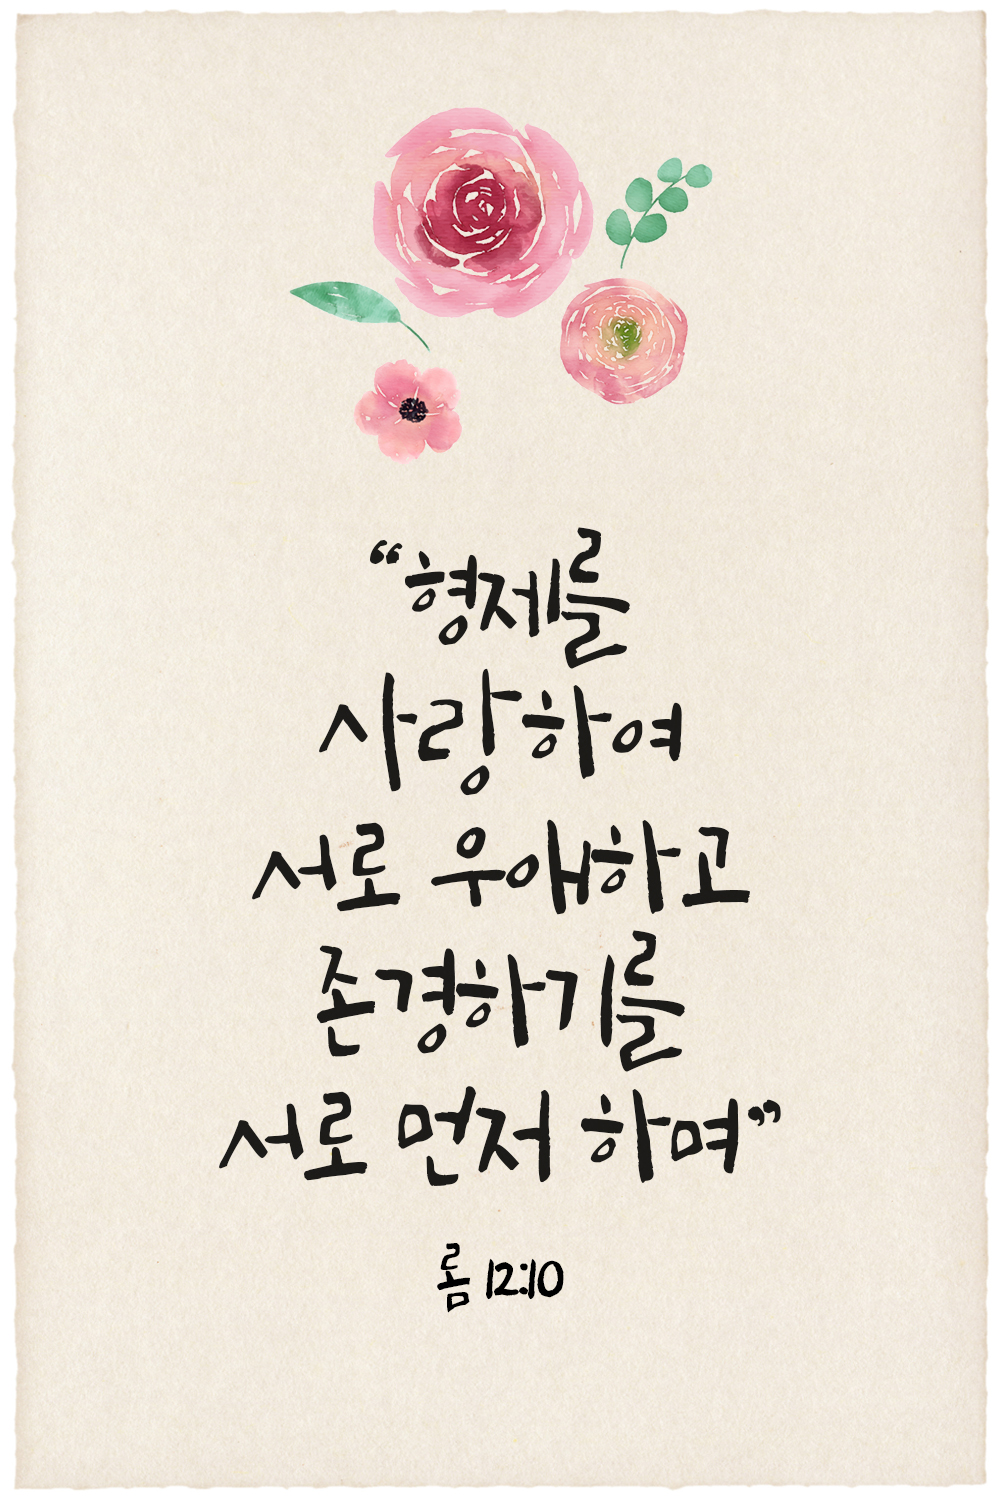 “형제를
사랑하여
서로 우애하고
존경하기를
서로 먼저 하며”
롬 12:10